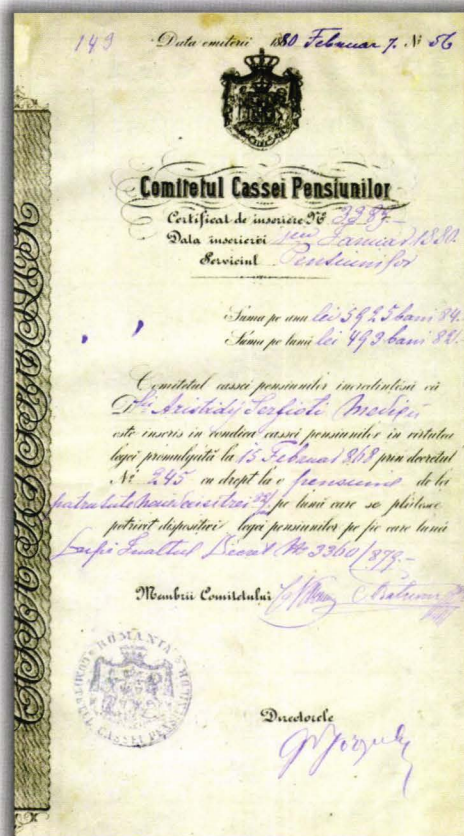 149 Data emiterii 1880 Februar 7. № 56
Comitetul Cassei Pensiunilor
Certificat de inscriere № 3983.-
Data inscrierei 1880
Serviciul Pensiunilor
Suma pe anu lei 5925 bani 84.
Suma pe lună lei 493 bani 82.
Comitetul cassei pensiunilor incredinteză că
Dl Aristidy Serfioti Medicu
este inscris in condica cassei pensiunilor in virtutea
legei promulgată la 15 Februar 1868 prin decretul
№ 245 cu drept la o pensiune de lei
pe lună care se plătesce
potrivit dispositiei legei pensiunilor pe fie care lună
Inaltul Decret № 3360/879.-
Membrii Comitetului
ROMANIA
Directorele